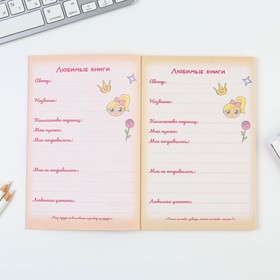 Любимые книги
Автор:
Название:
Количество страниц:
Моя оценка:
Мне понравилось:
Мне не понравилось:
Любимая цитата:
Любимые книги
Автор:
Название:
Количество страниц:
Моя оценка:
Мне понравилось:
Мне не понравилось:
Любимая цитата: